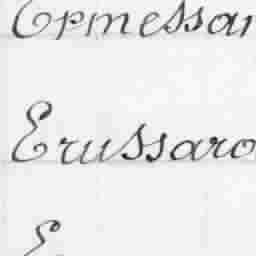 Epmessar
Erussaro